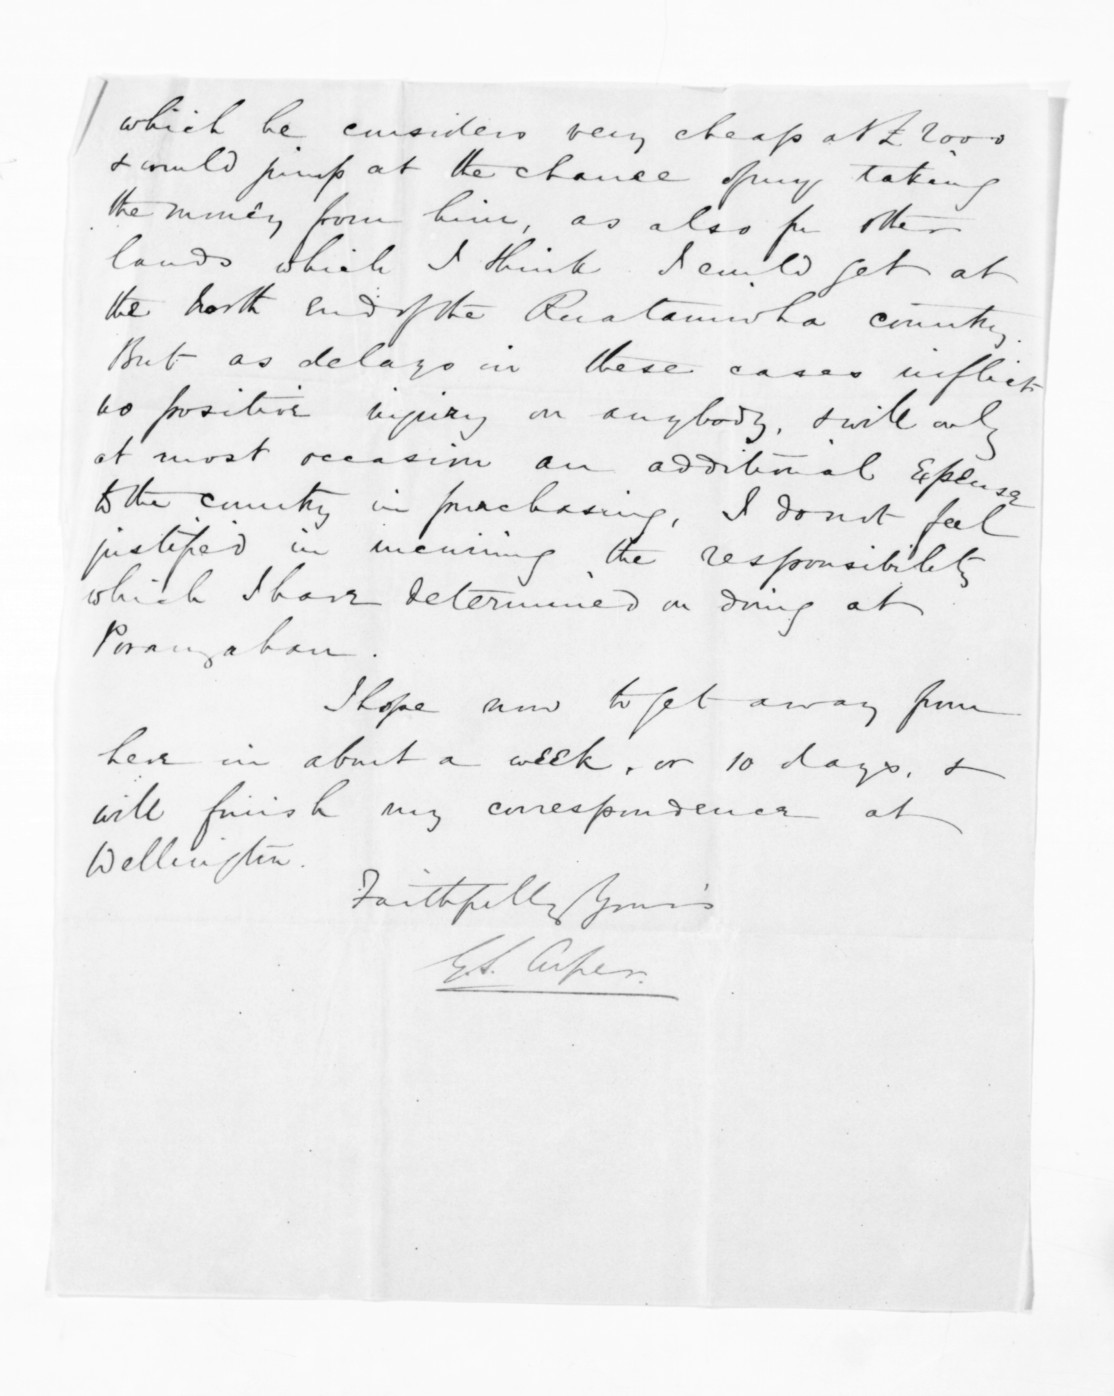 which he considers very cheap at £2000
& would jump at the chance of my taking
the money from him, as also for other
lands which I think I could get at
the North end of the Ruataniwha country.
But as delays in these cases inflict
no positive injury on anybody, & will only
at most occasion an additional expense
to the country in purchasing, I do not feel
justified in incurring the responsibility
which I have determined on doing at
Porangahau.
I hope now to get away from
here in about a week, or 10 days, &
will finish my correspondence at
Wellington.
Faithfully Yours
G.S. Cooper.